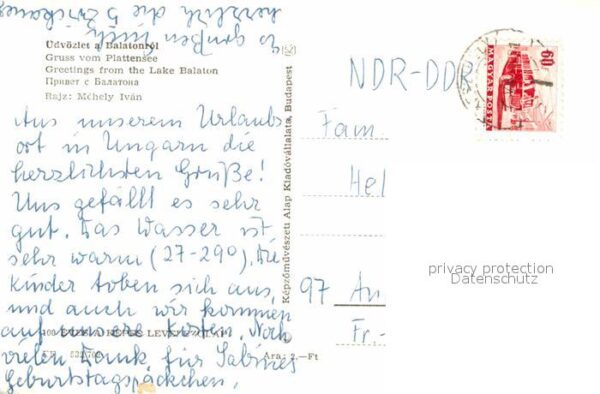 Üdvözlet a Balatonról
Gruss vom Plattensee
Greetings from the Lake Balaton
Привет с Балатона
Rajz: Méhely Iván
Aus unserem Urlaubs
ort in Ungarn die
herzlichsten Grüße!
Uns gefällt es sehr
gut. Das Wasser ist
sehr warm (27-29°). Die
Kinder toben sich aus,
und auch wir kommen
auf unsere Kosten. Noch
vielen Dank für Sabines
Geburtstagspäckchen.
Es grüßen Euch
herzlich die 5 Zwickauer
Képzőművészeti Alap Kiadóvállalata, Budapest
Ára: 2.-Ft
NDR-DDR
Fam
Hel
97 An
Fr-
60
MAGYAR POSTA
privacy protection
Datenschutz